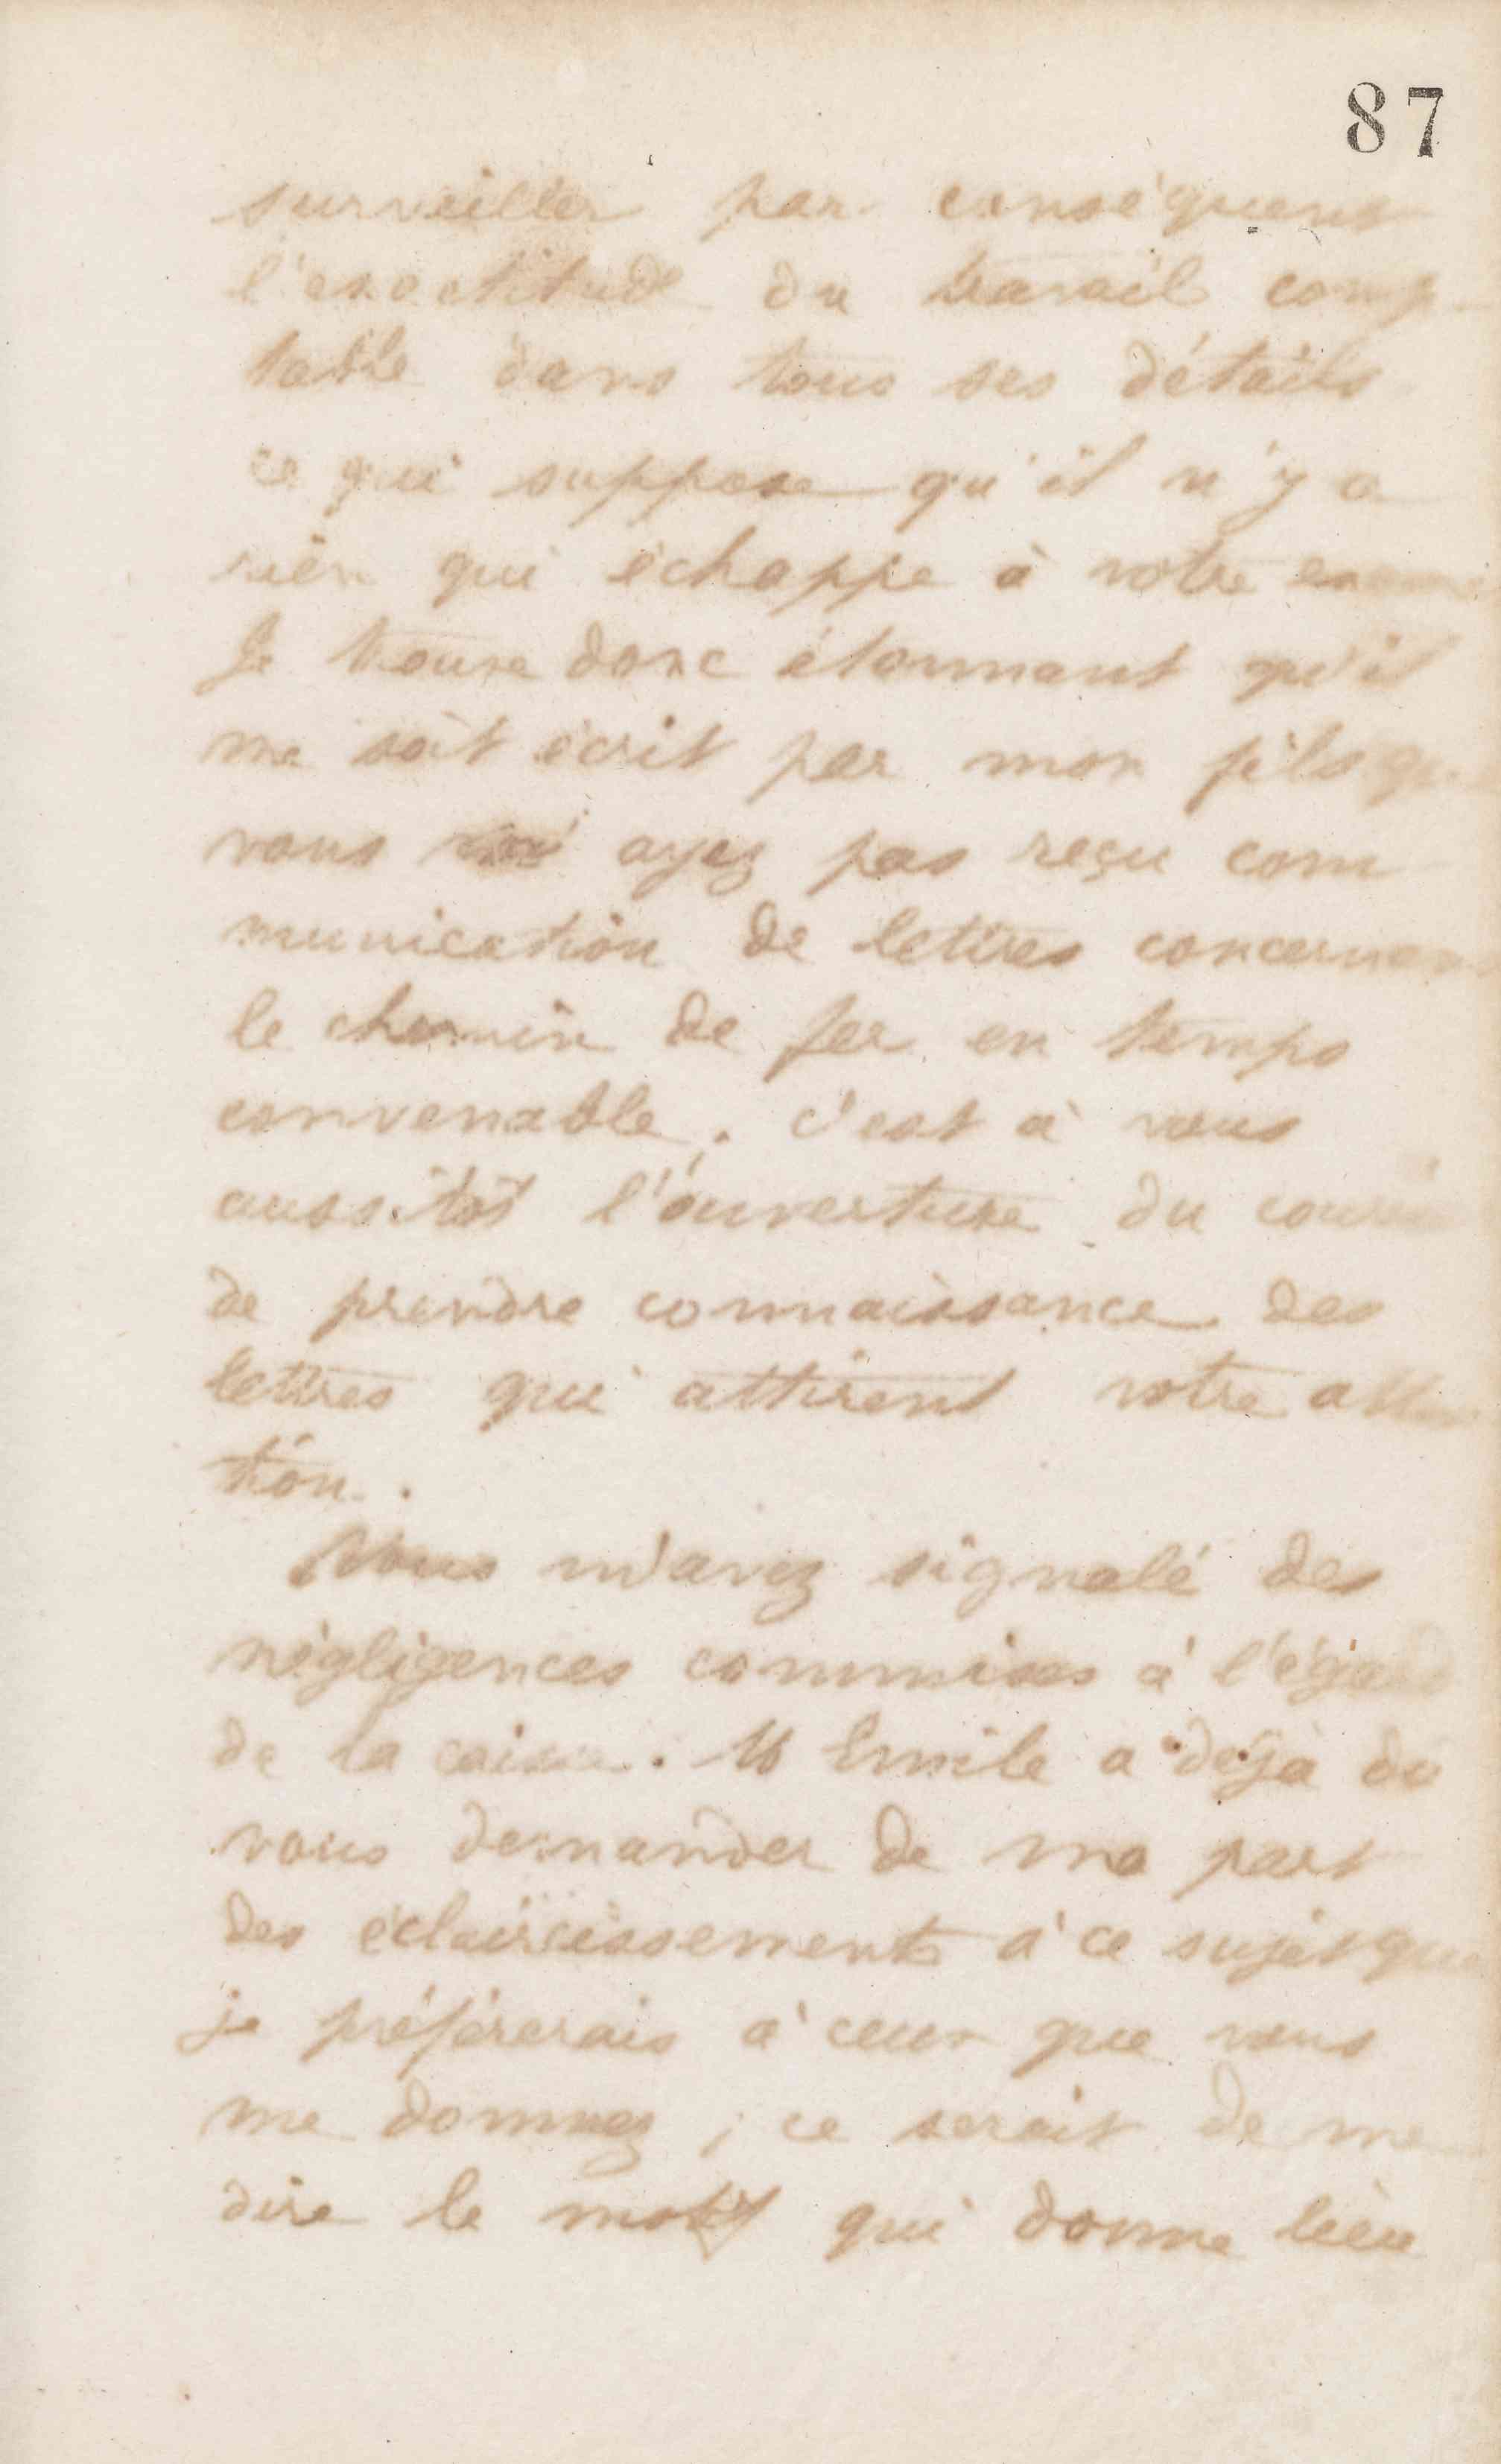 87
surveiller par conséquent
l'exactitude du travail comp
table dans tous ses détails
ce qui suppose qu'il n'y a
rien qui échappe à votre
Je trouve donc étonnant qu'il
me soit écrit par mon fils que
vous ayez pas reçu com
munication de lettres concernant
le chemin de fer en temps
convenable, c'est à vous
aussitôt l'ouverture du
de prendre connaissance des
lettres qui attirent votre atten
tion.
Vous m'avez signalé des
négligences commises à l'égard
de la caisse. M Emile a déjà dû
vous demander de ma part
des éclaircissements à ce sujet que
je préférerais à ceux que vous
me donnez ; ce serait de me
dire le motif qui donne lieu